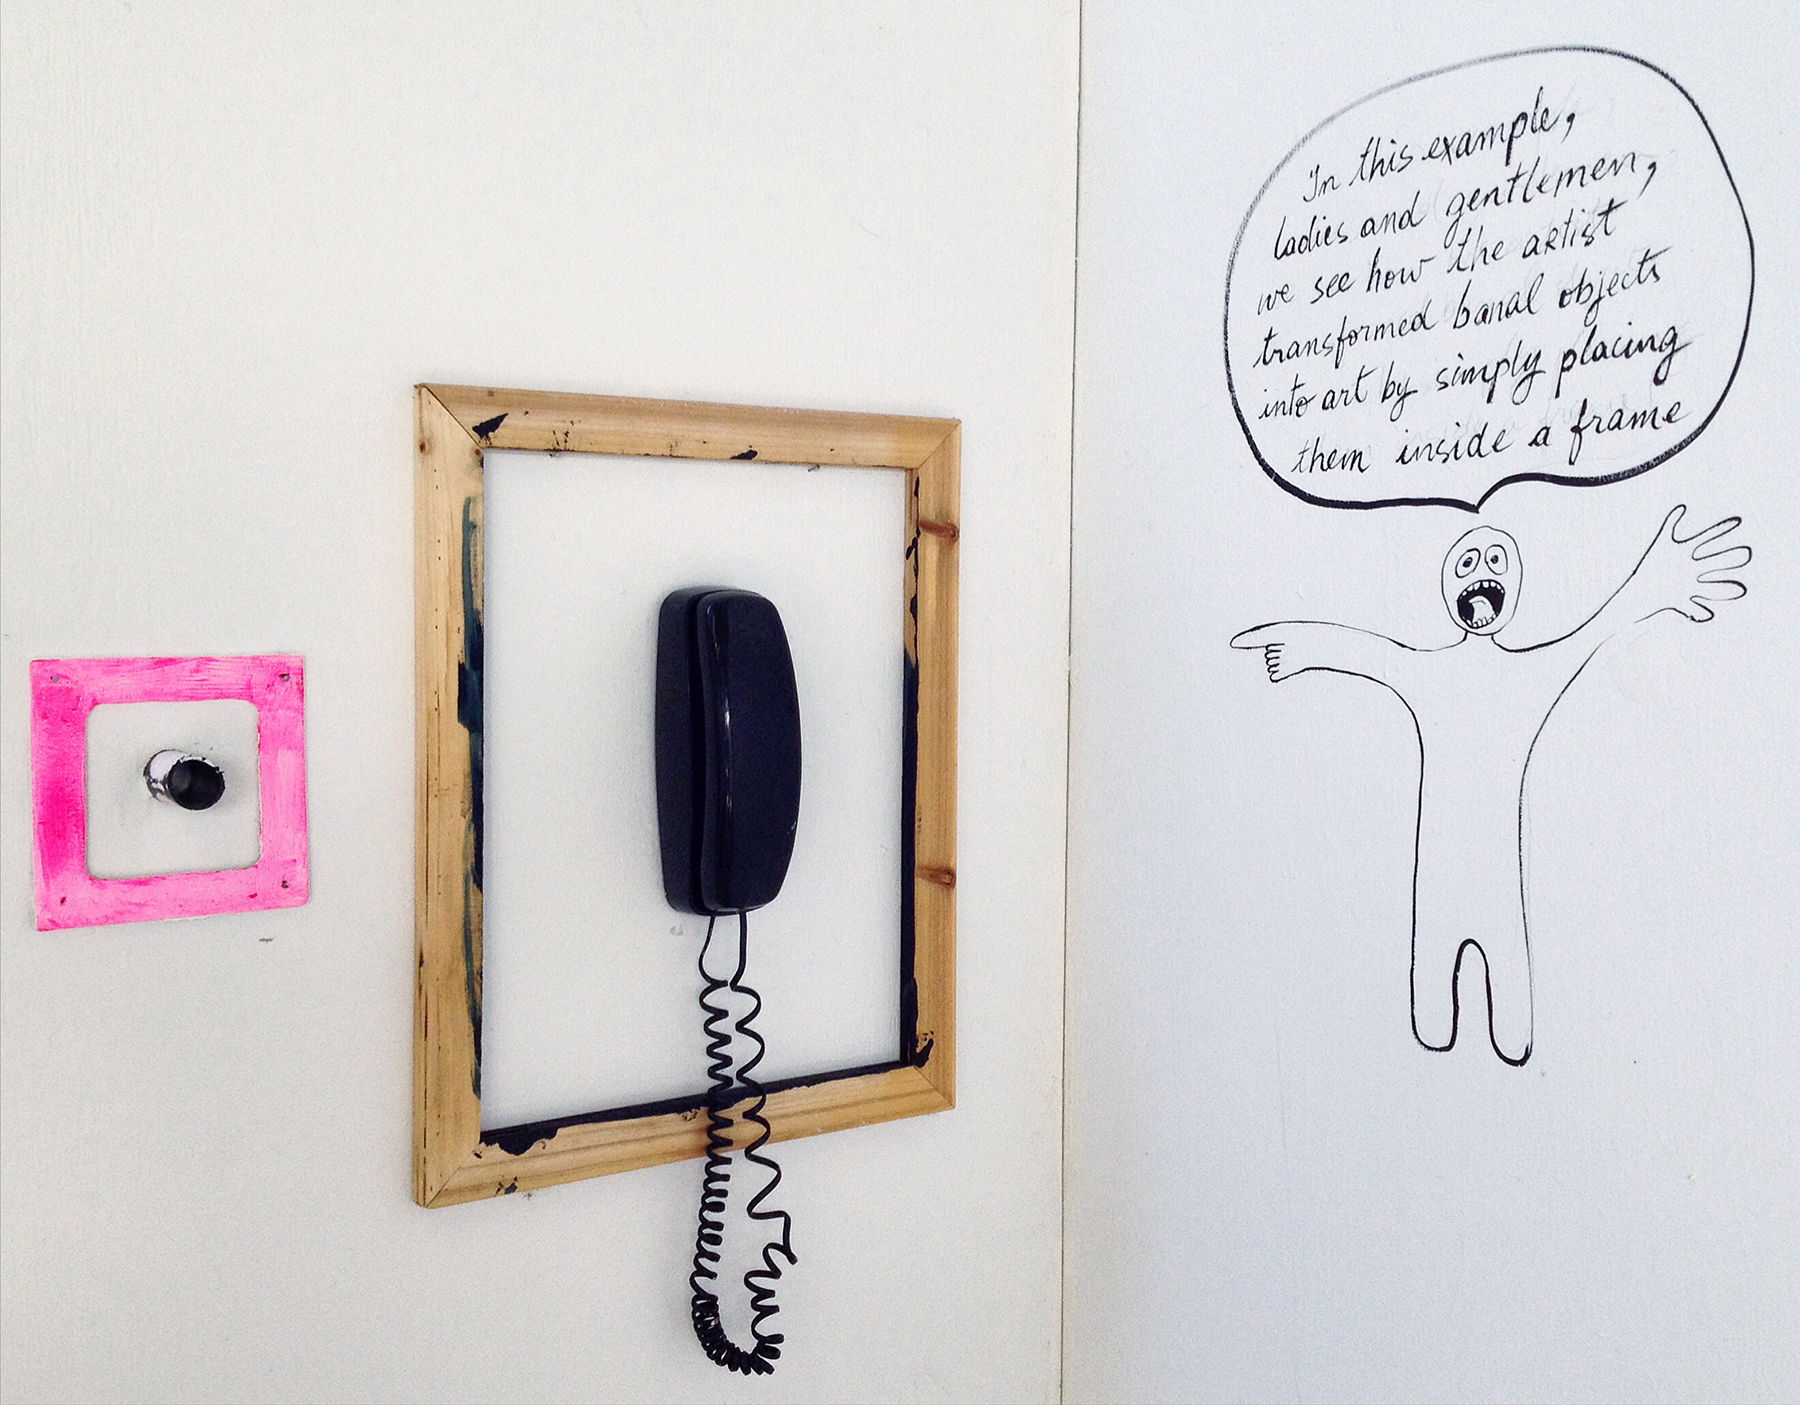 In this example,
ladies and gentlemen,
we see how the artist
transformed banal objects
into art by simply placing
them inside a frame